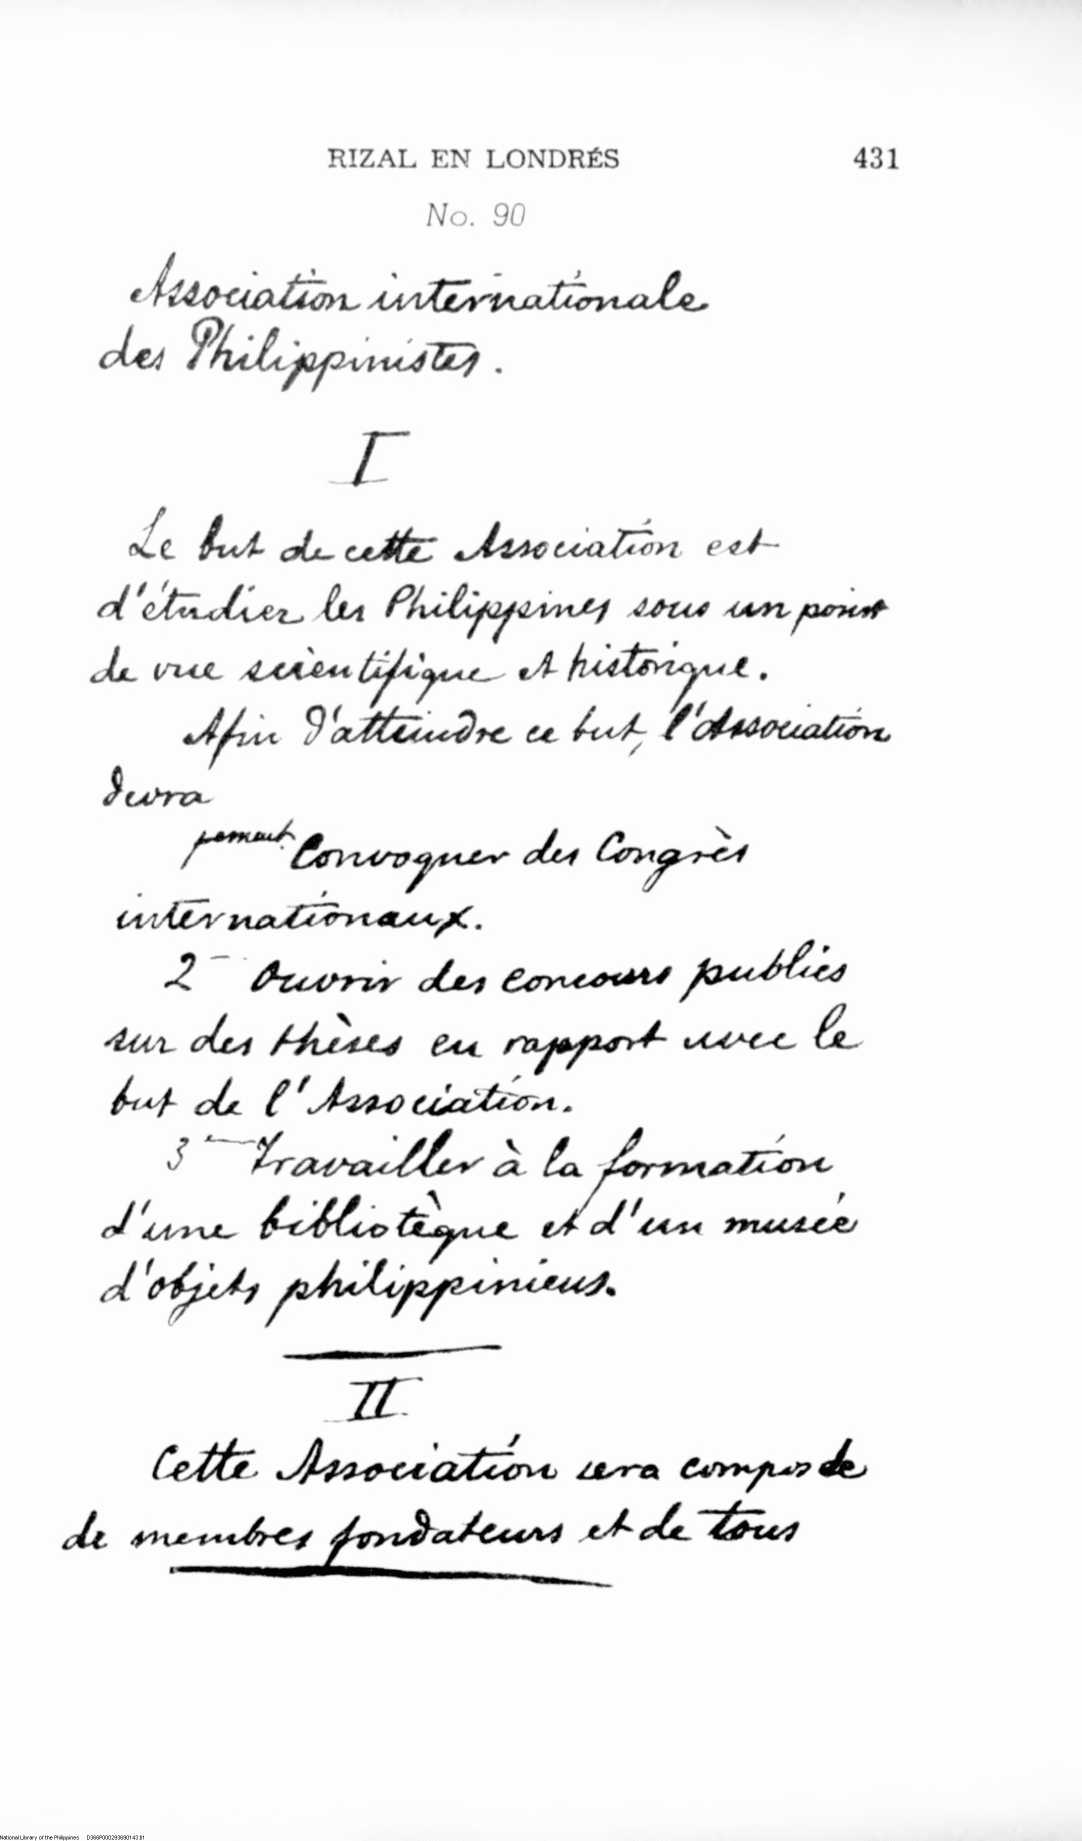 RIZAL EN LONDRÉS 431
No. 90
Association internationale
des Philippinistes.
I
Le but de cette Association est
d'étudier les Philippines sous un point
de vue scientifique et historique.
Afin d'atteindre ce but, l'Association
devra
Convoquer des Congrès
internationaux.
2 Ouvrir des concours publics
sur des thèses en rapport avec le
but de l'Association.
3 Travailler à la formation
d'une bibliotèque et d'un musée
d'objets philippiniens.
II
Cette Association sera compos de
de membres fondateurs et de tous
National Library of the Philippines D366P000293690143.tif